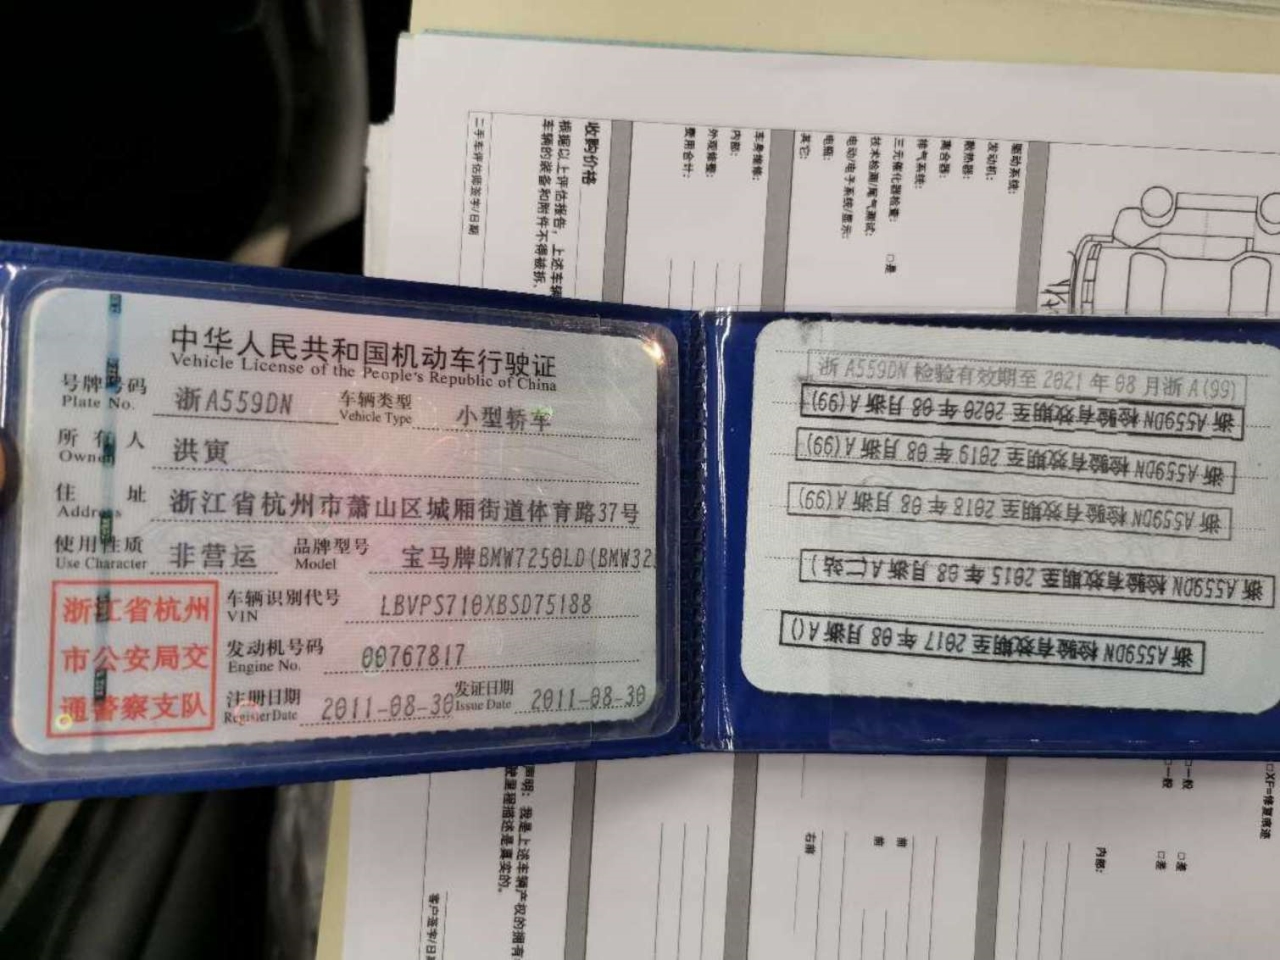 中华人民共和国机动车行驶证
Vehicle License of the People's Republic of China
号牌号码 浙A559DN 车辆类型 小型轿车
Plate No. Vehicle Type
所有人 洪寅
Owner
住址 浙江省杭州市萧山区城厢街道体育路37号
Address
使用性质 非营运 品牌型号 宝马牌BMW7250LD(BMW32
Use Character Model
浙江省杭州
市公安局交
通警察支队
车辆识别代号 LBVPS710XBSD75188
VIN
发动机号码 00767817
Engine No.
注册日期 2011-08-30 发证日期 2011-08-30
Register Date Issue Date
浙A559DN检验有效期至2021年08月浙A(99)
浙A559DN检验有效期至2020年08月浙A(99)
浙A559DN检验有效期至2019年08月浙A(99)
浙A559DN检验有效期至2018年08月浙A(99)
浙A559DN检验有效期至2015年08月浙A(二站)
浙A559DN检验有效期至2017年08月浙A()
驱动系统:
发动机:
散热器:
离合器:
排气系统:
三元催化器检查: □是
技术检测/尾气测试:
电动/电子系统/显示:
电瓶:
其它:
车身维修:
内部:
外观修整:
费用合计:
收购价格
根据以上评估报告，上述车辆
车辆的装备和附件不得被拆.
二手车评估师签字/日期
声明: 我是上述车辆产权的拥有
使里程描述是真实的。
客户签字/日
右前
前
前
内部:
□一般
□一般
□差
□差
□XF=修复痕迹